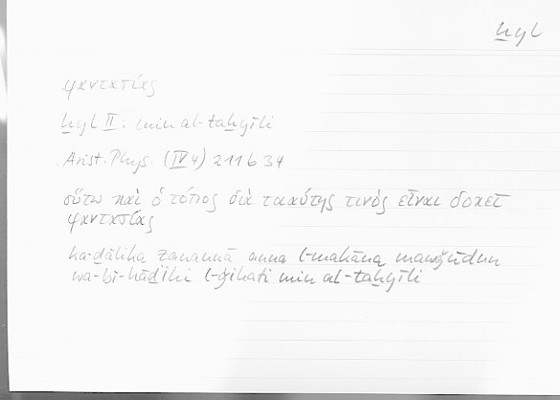 h̲yl
φαντασίας
h̲yl II: min al-tah̲yīli
Arist. Phys. (IV 4) 211 b 34
οὕτω καὶ ὁ τόπος διὰ τοιαύτης τινὸς εἶναι δοκεῖ
φαντασίας
ka-d̲ālika ẓanannā anna l-makāna mawǧūdun
wa-bi-hād̲ihi l-ǧihati min al-tah̲yīli